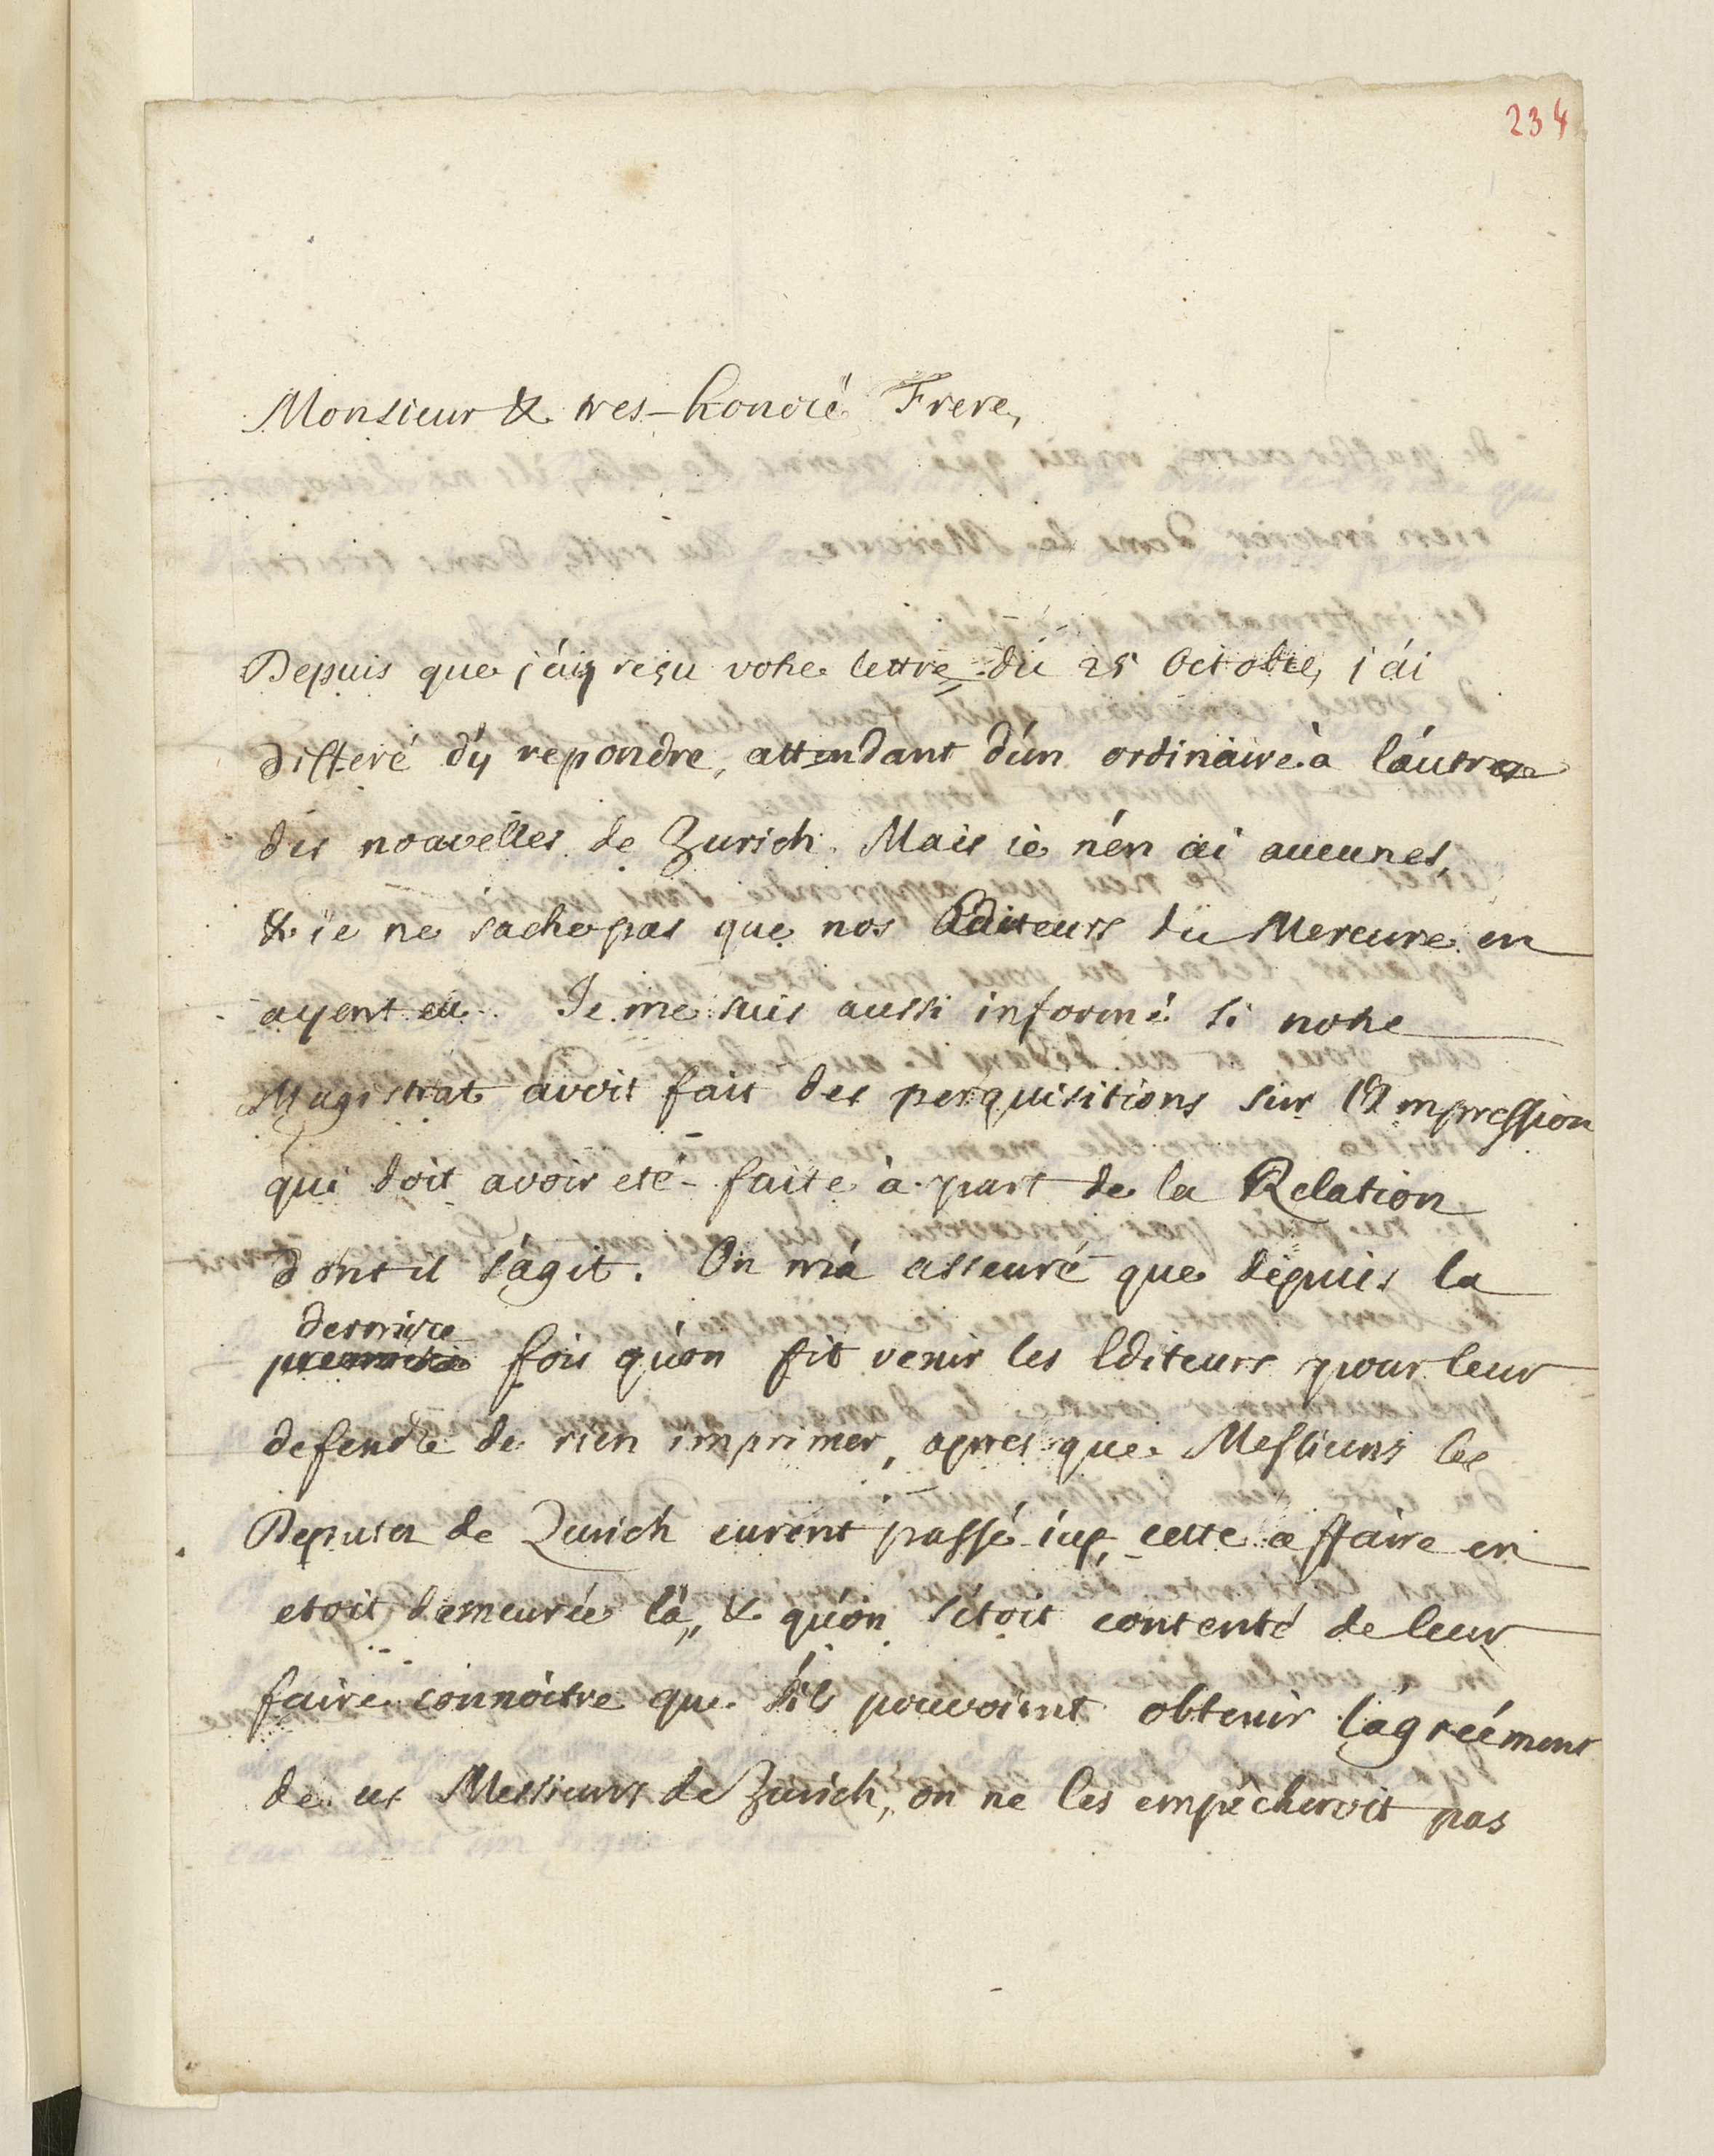 234
Monsieur & tres-honoré Frere,
Depuis que j'ay reçu votre lettre du 25 Octobre, j'ai
differé d'y repondre, attendant d'un ordinaire à l'autre
des nouvelles de Zurich. Mais je n'en ai aucunes,
& je ne sache pas que nos Editeurs du Mercure en
ayent eu. Je me suis aussi informé si notre
Magistrat avoit fait des perquisitions sur l'Impression
qui doit avoir eté faite à part de la Relation
dont il s'agit. On m'a asseuré que depuis la
derniere
premiere fois qu'on fit venir les Editeurs pour leur
defendre de rien imprimer, apres que Messieurs les
Deputez de Zurich eurent passé icy, cette affaire en
etoit demeurée là, & qu'on s'etoit contenté de leur
faire connoitre que s'ils pouvoient obtenir l'agréément
de ces Messieurs de Zurich, on ne les empêcheroit pas